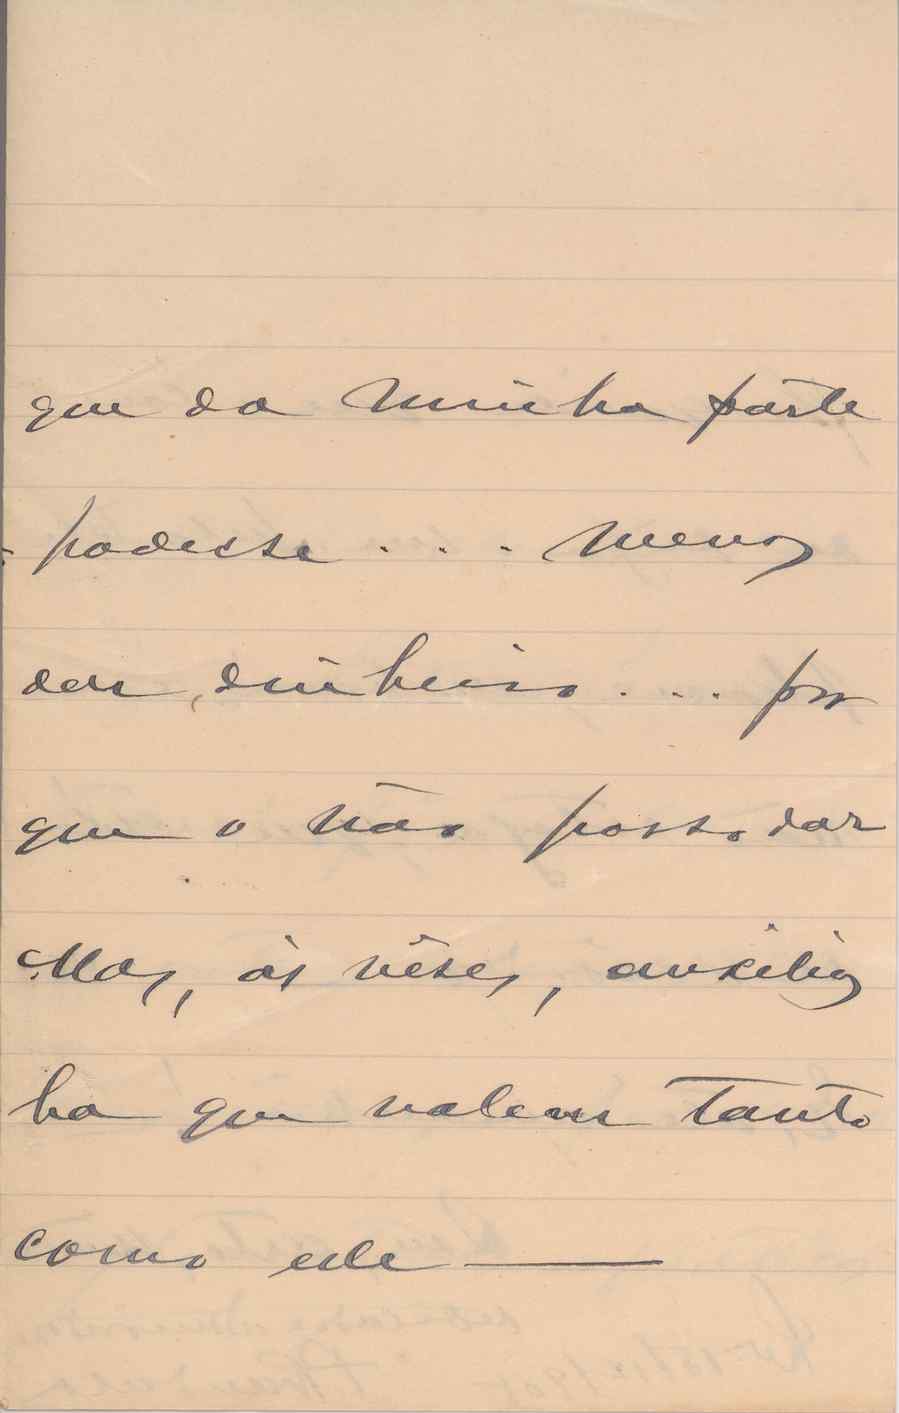 que da minha parte
podesse . . . menos
dar dinheiro . . . por
que o não posso dar
Mas, ás vêses, auxilios
ha que valem tanto
como ele —